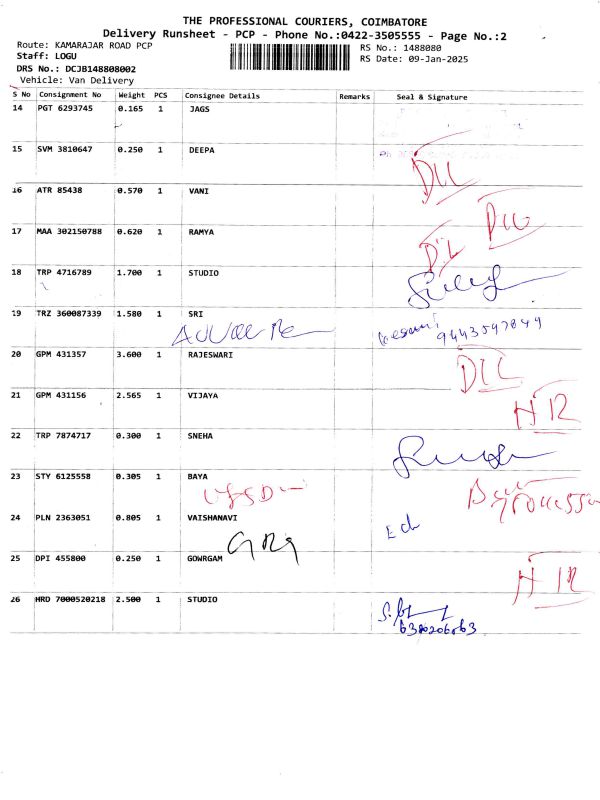 THE PROFESSIONAL COURIERS, COIMBATORE
Delivery Runsheet - PCP - Phone No.:0422-3505555 - Page No.:2
Route: KAMARAJAR ROAD PCP
RS No.: 1488080
Staff: LOGU
RS Date: 09-Jan-2025
DRS No.: DCJB148808002
Vehicle: Van Delivery
S No Consignment No Weight PCS Consignee Details Remarks Seal & Signature
14 PGT 6293745 0.165 1 JAGS
15 SVM 3810647 0.250 1 DEEPA
DLL
16 ATR 85438 0.570 1 VANI
17 MAA 302150788 0.620 1 RAMYA
18 TRP 4716789 1.700 1 STUDIO
19 TRZ 360087339 1.580 1 SRI
20 GPM 431357 3.600 1 RAJESWARI
21 GPM 431156 2.565 1 VIJAYA
22 TRP 7874717 0.300 1 SNEHA
23 STY 6125558 0.305 1 BAYA
24 PLN 2363051 0.805 1 VAISHANAVI
25 DPI 455800 0.250 1 GOWRGAM
26 HRD 7000520218 2.500 1 STUDIO